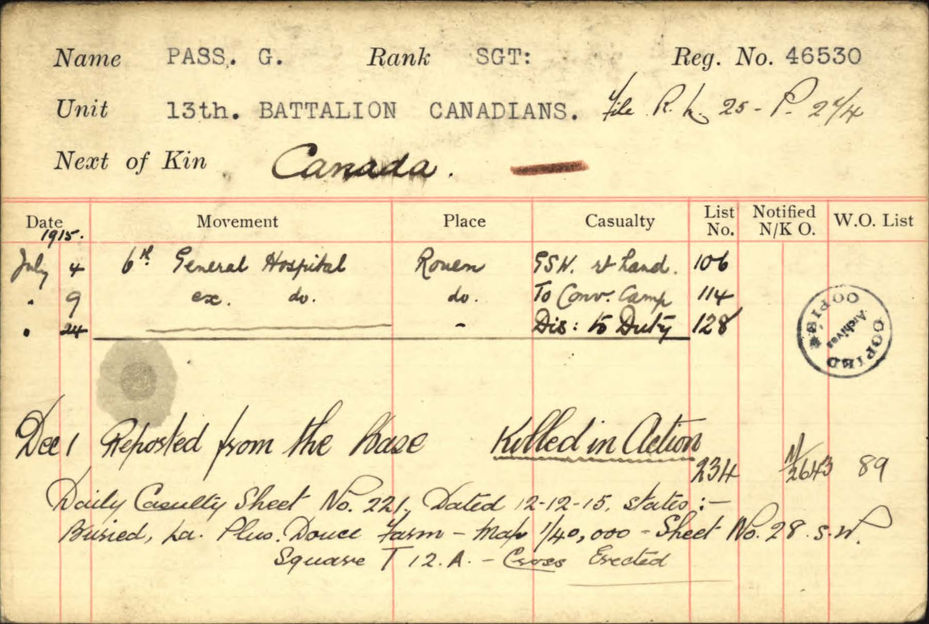 Name PASS. G. Rank SGT: Reg. No. 46530
Unit 13th. BATTALION CANADIANS. file R. L. 25 - P. 274
Next of Kin Canada.
Date Movement Place Casualty List No. Notified N/K O. W.O. List
1915.
July 4 6th General Hospital Rouen GSW. rt hand. 106
" 9 ex. do. do. To Conv. Camp 114
" 24 - Dis: to Duty 128
COPIED Archives COPIED
Dec 1 Reported from the Base Killed in Action
234 N/2643 89
Daily Casulty Sheet No. 221, Dated 12-12-15, states:-
Buried, La. Plus. Douce Farm - Map 1/40,000 - Sheet No. 28. S.W.
Square T 12. A. - Cross Erected